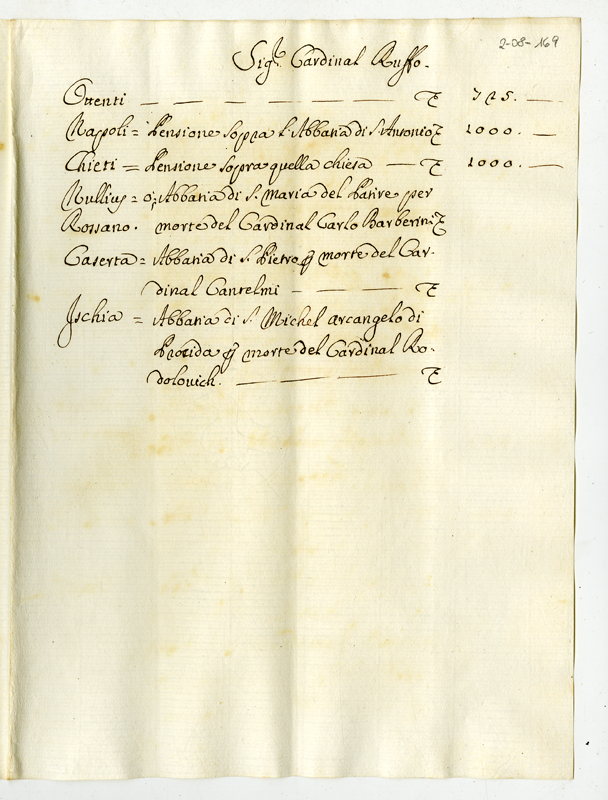 2-08-169
Sig.r Cardinal Ruffo.
Ottenti — — — — — — ∇ 725. —
Napoli = Pensione sopra l'Abbatia di S. Antonio ∇ 1000. —
Chieti = Pensione sopra quella chiesa — ∇ 1000. —
Nullius = o; Abbatia di S. Maria del Patire per
Rossano. morte del Cardinal Carlo Barberini ∇
Caserta = Abbatia di S. Pietro p morte del Car-
dinal Cantelmi — — — ∇
Ischia = Abbatia di S. Michel arcangelo di
Procida p morte del Cardinal Ro-
dolovich. — — — ∇